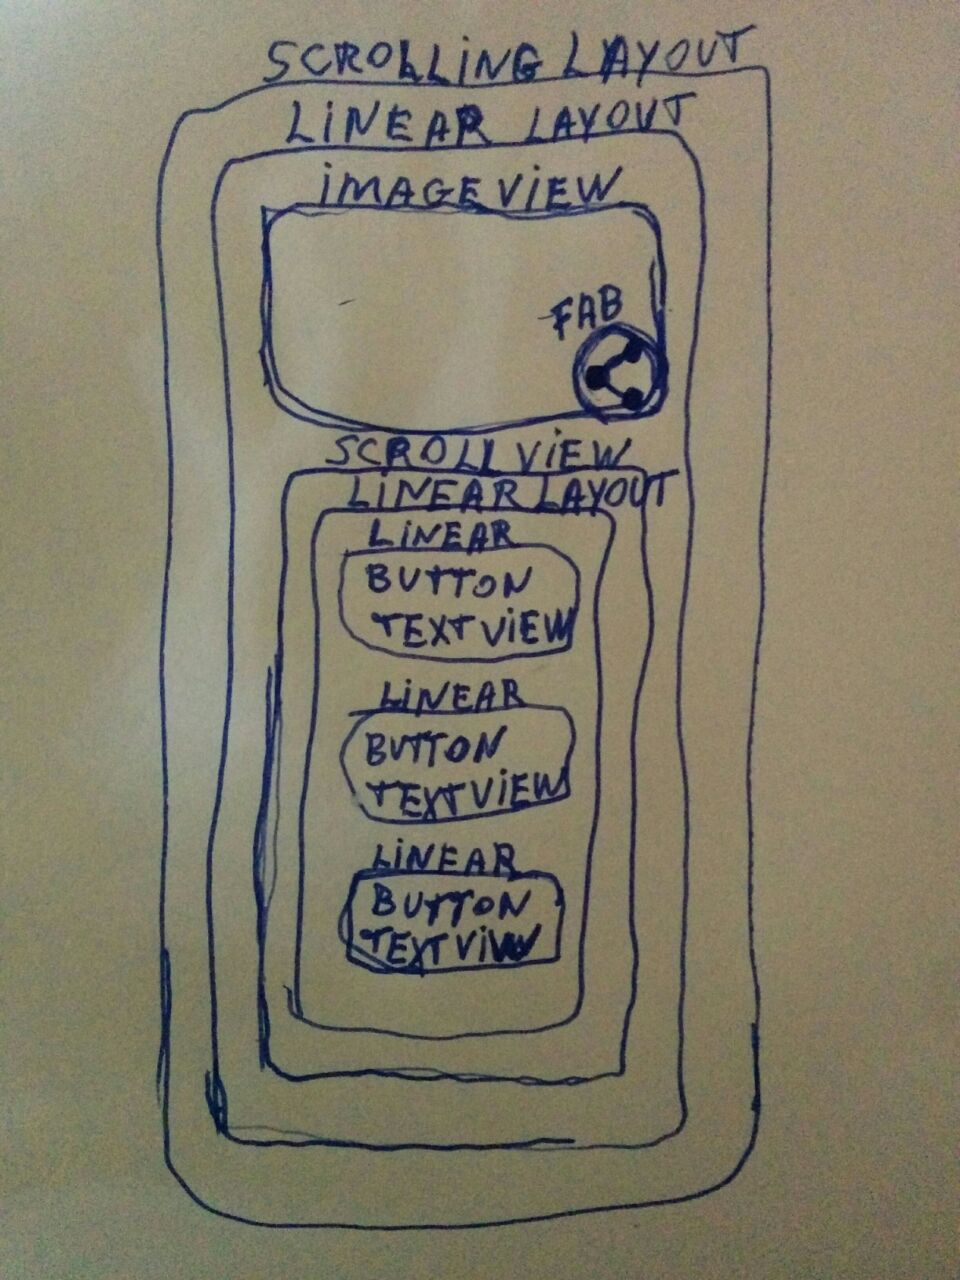 SCROLLING LAYOUT
LINEAR LAYOUT
IMAGEVIEW
FAB
SCROLLVIEW
LINEAR LAYOUT
LINEAR
BUTTON
TEXTVIEW
LINEAR
BUTTON
TEXTVIEW
LINEAR
BUTTON
TEXTVIVW